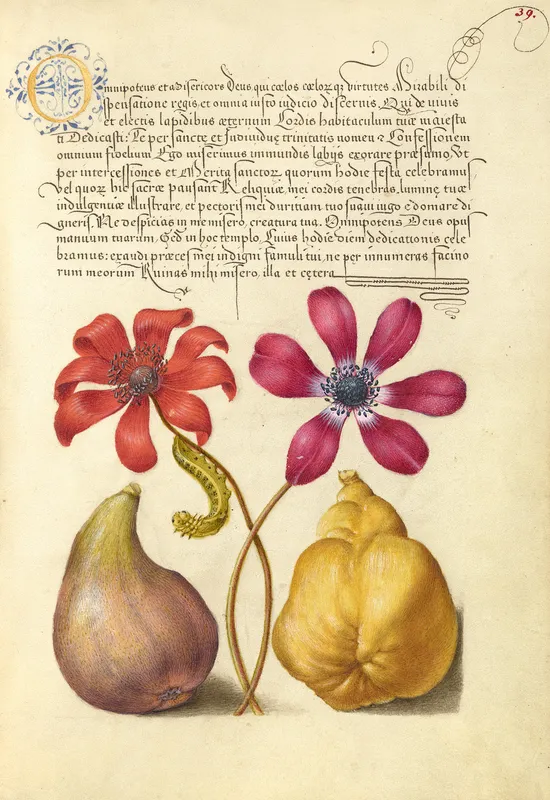 39.
Omnipotens et misericors Deus qui cœlos cœlorqȝ virtutes Mirabili di
spensatione regis, et omnia iusto iudicio discernis, Qui de vivis
et electis lapidibus æternum Cordis habitaculum tuæ maiesta
ti Dedicasti: Te per sanctæ et Individuæ trinitatis nomen & Confessionem
omnium fidelium Ego miserimus immundis labijs exorare præsumo, Vt
per intercessiones et Merita sanctor, quorum hodie festa celebramus
vel quor hic sacræ pausant Reliquiæ, mei cordis tenebras, lumine tuæ
indulgentiæ illustrare, et pectoris mei duritiam tuo suavi iugo edomare di
gneris. Ne despicias in me misero, creatura tua. Omnipotens Deus opus
manuum tuarum, Sed in hoc templo, Cuius hodie diem dedicationis cele
bramus: exaudi præces mei indigni famuli tui, ne per innumeras facino
rum meorum Ruinas mihi misero, illa et cętera